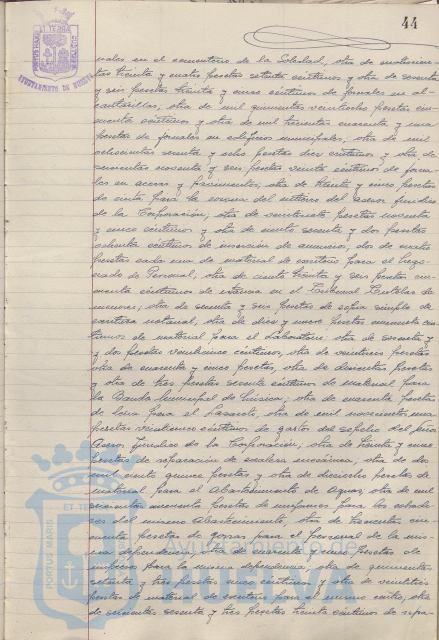 44
PORTUS MARIS ET TERRAE
AYUNTAMIENTO DE HUELVA
nales en el cementerio de la Soledad, otra de cuatrocien-
tas treinta y cuatro pesetas setenta céntimos y otra de sesenta
y seis pesetas treinta y cinco céntimos de jornales en al-
cantarillas, otra de mil quinientas veintiocho pesetas cin-
cuenta céntimos y otra de mil trescientas cuarenta y una
pesetas de jornales en edificios municipales; otra de mil
ochocientas sesenta y ocho pesetas diez céntimos y otra de
novecientas noventa y seis pesetas veinte céntimos de jorna-
les en aceras y pavimentos, otra de treinta y cinco pesetas
de cinta para la corona del entierro del asesor jurídico
de la Corporación; otra de veintisiete pesetas noventa
y cinco céntimos y otra de ciento sesenta y dos pesetas
ochenta céntimos de inserción de anuncios; dos de cuatro
pesetas cada una de material de escritorio para el Nego-
ciado de Personal; otra de ciento treinta y seis pesetas cin-
cuenta céntimos de estancia en el Tribunal Tutelar de
menores; otra de sesenta y seis pesetas de copia simple de
escritura notarial, otra de diez y nueve pesetas cincuenta cén-
timos de material para el Laboratorio; otra de sesenta y
y dos pesetas veinticinco céntimos, otra de veintiseis pesetas
otra de cuarenta y cinco pesetas, otra de doscientas pesetas
y otra de tres pesetas sesenta céntimos de material para
la Banda Municipal de Música; otra de cuarenta pesetas
de leña para el Lazareto, otra de mil novecientas una
pesetas veinticinco céntimos de gastos del sepelio del Sr.
Asesor Jurídico de la Corporación; otra de treinta y cinco
pesetas de reparación de escalera mecánica, otra de dos
mil ciento quince pesetas y otra de dieciocho pesetas de
material para el Abastecimiento de Aguas, otra de mil
seiscientas cincuenta pesetas de uniformes para los cobrado-
res del mismo Abastecimiento, otra de trescientas cin-
cuenta pesetas de gorras para el personal de la mis-
ma dependencia, otra de cuarenta y cinco pesetas de
impresos para la misma dependencia; otra de quinientas
setenta y tres pesetas cinco céntimos y otra de veintitrés
pesetas de material de escritorio para el mismo centro, otra
de seiscientas sesenta y tres pesetas treinta céntimos de repa-
PORTUS MARIS ET TERRAE
Ayuntamiento de Huelva